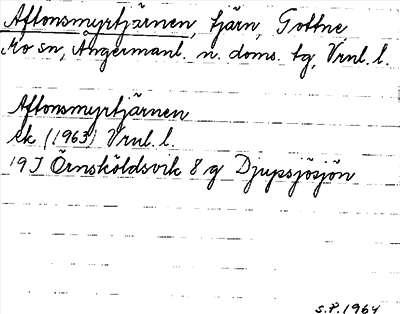 Aftonsmyrtjärnen, tjärn, Gottne,
Mo sn, Ångermanl. n. doms. tg, Vrnl. l.
Aftonsmyrtjärnen
ek (1963) Vrnl. l.
19I Örnsköldsvik 8 g Djupsjösjön
S.P. 1964